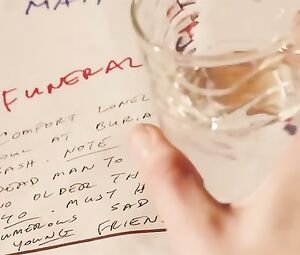 MA
FUNERAL
COMFORT LONEL
SOUL AT BURIA
CASH. NOTE
DEAD MAN TO
NO OLDER TH
40. MUST H
NUMEROUS SAD
YOUNG FRIEN